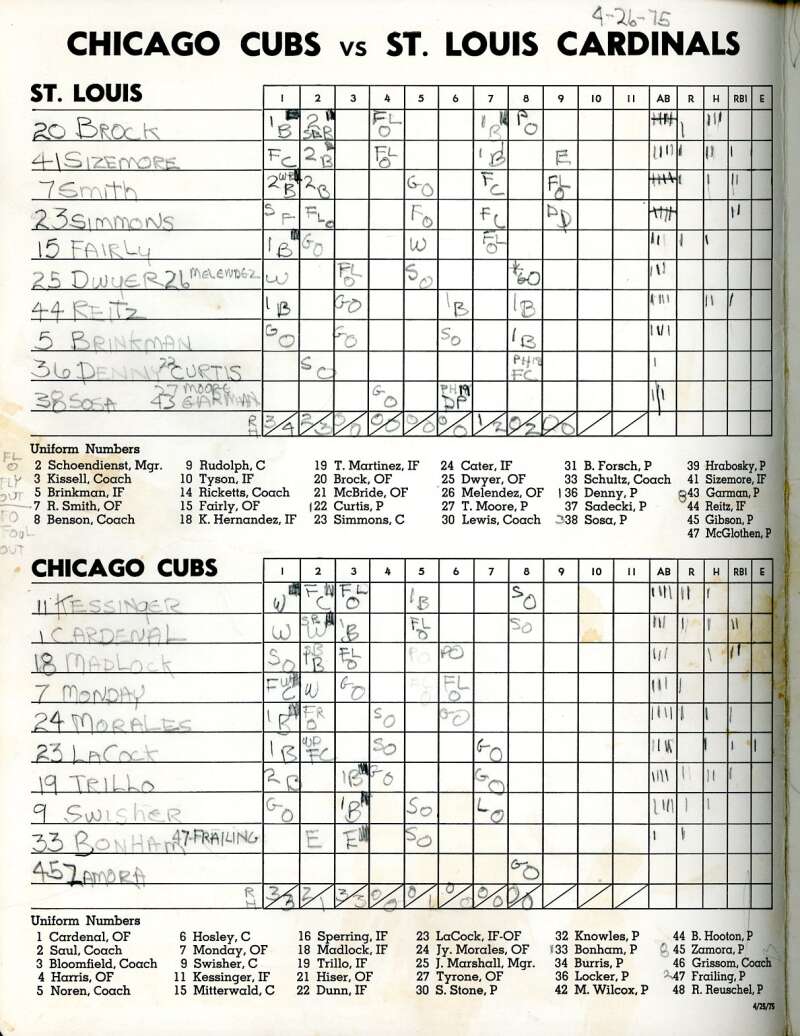 4-26-75
CHICAGO CUBS vs ST. LOUIS CARDINALS
ST. LOUIS 1 2 3 4 5 6 7 8 9 10 11 AB R H RBI E
20 BROCK 1B 2 FLO 1B PO
41 SIZEMORE FC 2B FLO 1B E
7 Smith 2B 2B GO FC FLO
23 SIMMONS SF FLO FO FC
15 FAIRLY 1B GO W FLO
25 DWYER 26 MELENDEZ W FLO SO GO
44 REITZ 1B GO 1B 1B
5 BRINKMAN GO GO SO 1B
36 DENNY 22 CURTIS SO PH FC
38 SOSA 27 MOORE 43 GARMAN GO PH 19 DP
R H 3/4 2/3 0/0 0/0 0/0 0/0 1/2 0/2 0/0
Uniform Numbers
2 Schoendienst, Mgr. 9 Rudolph, C 19 T. Martinez, IF 24 Cater, IF 31 B. Forsch, P 39 Hrabosky, P
3 Kissell, Coach 10 Tyson, IF 20 Brock, OF 25 Dwyer, OF 33 Schultz, Coach 41 Sizemore, IF
5 Brinkman, IF 14 Ricketts, Coach 21 McBride, OF 26 Melendez, OF 36 Denny, P 43 Garman, P
7 R. Smith, OF 15 Fairly, OF 22 Curtis, P 27 T. Moore, P 37 Sadecki, P 44 Reitz, IF
8 Benson, Coach 18 K. Hernandez, IF 23 Simmons, C 30 Lewis, Coach 38 Sosa, P 45 Gibson, P
47 McGlothen, P
FL
O
FLY
OUT
FO
FOUL
OUT
CHICAGO CUBS 1 2 3 4 5 6 7 8 9 10 11 AB R H RBI E
11 KESSINGER W FC FLO 1B SO
1 CARDENAL W W 1B FLO SO
18 MADLOCK SO B FLO PO PO
7 MONDAY FC W GO FLO
24 MORALES 1B FO SO GO
23 LaCock 1B FC SO GO
19 TRILLO 2B 1B GO GO
9 SWISHER GO 1B SO LO
33 BONHAM 47-FRAILING E E SO
45 ZAMORA GO
R H 3/3 2/1 3/3 0/0 0/1 0/0 0/0 0/0
Uniform Numbers
1 Cardenal, OF 6 Hosley, C 16 Sperring, IF 23 LaCock, IF-OF 32 Knowles, P 44 B. Hooton, P
2 Saul, Coach 7 Monday, OF 18 Madlock, IF 24 Jy. Morales, OF 33 Bonham, P 45 Zamora, P
3 Bloomfield, Coach 9 Swisher, C 19 Trillo, IF 25 J. Marshall, Mgr. 34 Burris, P 46 Grissom, Coach
4 Harris, OF 11 Kessinger, IF 21 Hiser, OF 27 Tyrone, OF 36 Locker, P 47 Frailing, P
5 Noren, Coach 15 Mitterwald, C 22 Dunn, IF 30 S. Stone, P 42 M. Wilcox, P 48 R. Reuschel, P
4/25/75